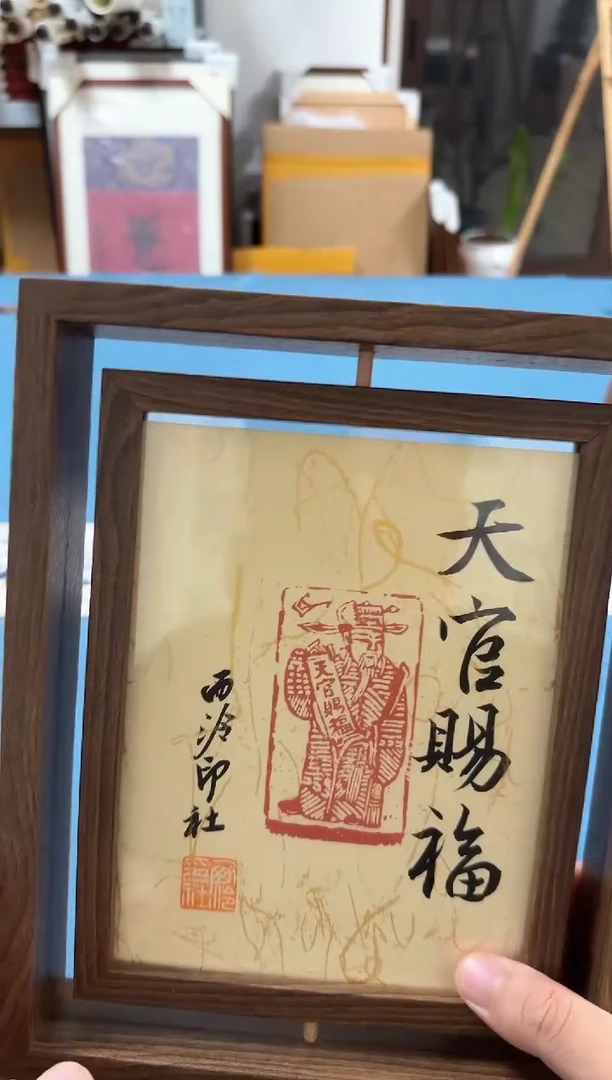 天官賜福
天官賜福
西泠印社